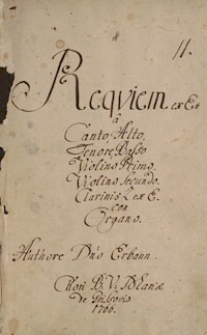 11.
Requiem ex Es
à
Canto, Alto,
Tenore, Basso
Violino Primo.
Violino Secundo.
Clarinis 2 ex E.
con
Organo.
Authore Dno Erbann.
Chori B. V.
de
1766.